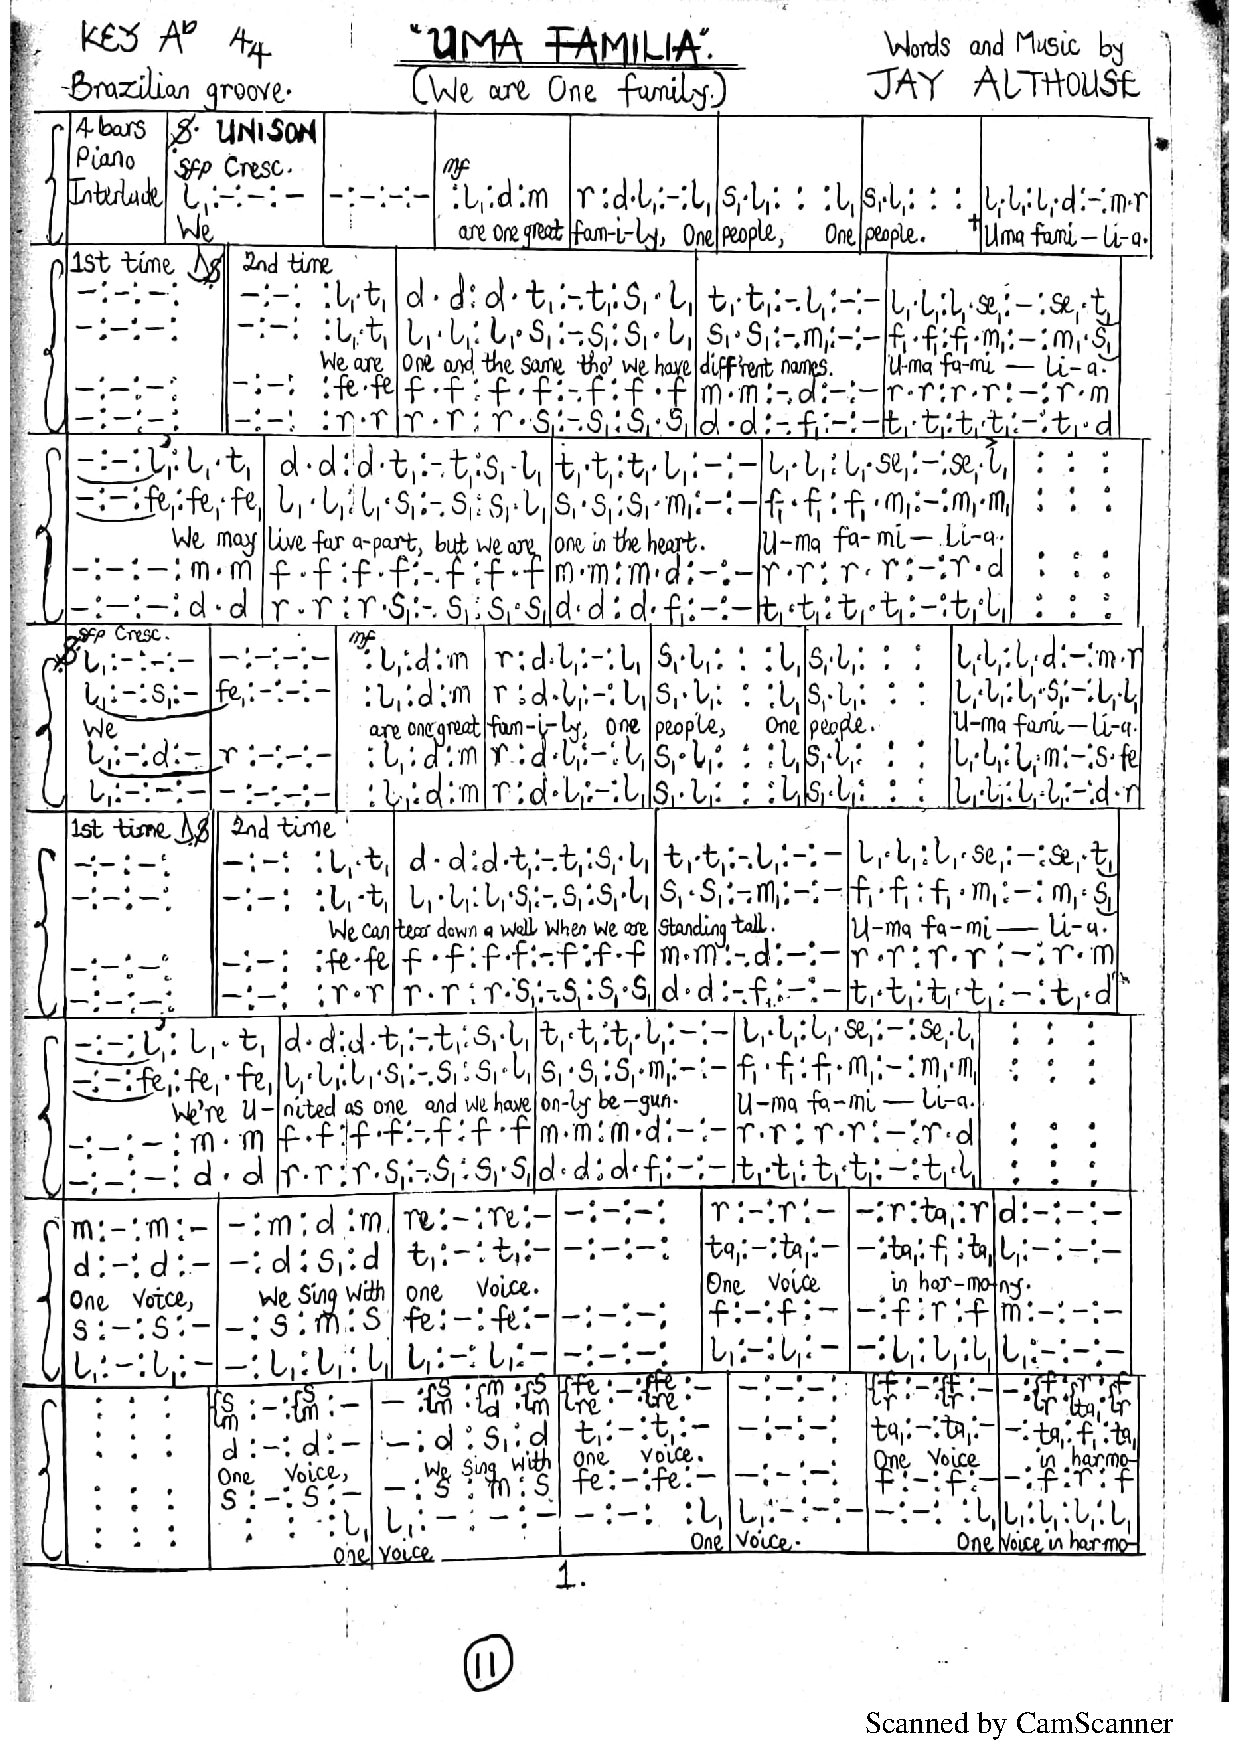 KEY Ab 4/4 "UMA FAMILIA". Words and Music by
Brazilian groove. (We are One family.) JAY ALTHOUSE
4 bars 𝄋. UNISON
Piano sfp Cresc. mf
Interlude l₁:-:-:- | -:-:-:- | :l₁:d:m | r:d.l₁:-:l₁ | s₁.l₁: : :l₁ | s₁.l₁: : : | l₁.l₁:l₁.d:-:m.r
We are one great fam-i-ly, One people, One people. Uma fami-li-a.
1st time D𝄋 2nd time
-:-:-: | -:-: :l₁.t₁ | d.d:d.t₁:-.t₁:s₁.l₁ | t₁.t₁:-.l₁:-:- | l₁.l₁:l₁.se₁:-:se₁.t₁
-:-:-: | -:-: :l₁.t₁ | l₁.l₁:l₁.s₁:-.s₁:s₁.l₁ | s₁.s₁:-.m₁:-:- | f₁.f₁:f₁.m₁:-:m₁.s₁
We are One and the same tho' we have diff'rent names. U-ma fa-mi — li-a.
-:-:-: | -:-: :fe.fe | f.f:f.f:-.f:f.f | m.m:-.d:-:- | r.r:r.r:-:r.m
-:-:-: | -:-: :r.r | r.r:r.s₁:-.s₁:s₁.s₁ | d.d:-.f₁:-:- | t₁.t₁:t₁.t₁:-:t₁.d
-:-:l₁:l₁.t₁ | d.d:d.t₁:-.t₁:s₁.l₁ | t₁.t₁:t₁.l₁:-:- | l₁.l₁:l₁.se₁:-:se₁.l₁ | : : :
-:-:fe₁:fe₁.fe₁ | l₁.l₁:l₁.s₁:-.s₁:s₁.l₁ | s₁.s₁:s₁.m₁:-:- | f₁.f₁:f₁.m₁:-:m₁.m₁ | : : :
We may live far a-part, but we are one in the heart. U-ma fa-mi — Li-a.
-:-:-:m.m | f.f:f.f:-.f:f.f | m.m:m.d:-:- | r.r:r.r:-:r.d | : : :
-:-:-:d.d | r.r:r.s₁:-.s₁:s₁.s₁ | d.d:d.f₁:-:- | t₁.t₁:t₁.t₁:-:t₁.l₁ | : : :
𝄋 sfp Cresc. mf
l₁:-:-:- | -:-:-:- | :l₁:d:m | r:d.l₁:-:l₁ | s₁.l₁: : :l₁ | s₁.l₁: : : | l₁.l₁:l₁.d:-:m.r
l₁:-:s₁:- | fe₁:-:-:- | :l₁:d:m | r:d.l₁:-:l₁ | s₁.l₁: : :l₁ | s₁.l₁: : : | l₁.l₁:l₁.s₁:-:l₁.l₁
We are one great fam-i-ly, one people, One people. U-ma fami — li-a.
l₁:-:d:- | r:-:-:- | :l₁:d:m | r:d.l₁:-:l₁ | s₁.l₁: : :l₁ | s₁.l₁: : : | l₁.l₁:l₁.m:-:s.fe
l₁:-:-:- | -:-:-:- | :l₁:d:m | r:d.l₁:-:l₁ | s₁.l₁: : :l₁ | s₁.l₁: : : | l₁.l₁:l₁.l₁:-:d.r
1st time D𝄋 2nd time
-:-:-: | -:-: :l₁.t₁ | d.d:d.t₁:-.t₁:s₁.l₁ | t₁.t₁:-.l₁:-:- | l₁.l₁:l₁.se₁:-:se₁.t₁
-:-:-: | -:-: :l₁.t₁ | l₁.l₁:l₁.s₁:-.s₁:s₁.l₁ | s₁.s₁:-.m₁:-:- | f₁.f₁:f₁.m₁:-:m₁.s₁
We can tear down a wall When we are Standing tall. U-ma fa-mi — li-a.
-:-:-: | -:-: :fe.fe | f.f:f.f:-.f:f.f | m.m:-.d:-:- | r.r:r.r:-:r.m
-:-:-: | -:-: :r.r | r.r:r.s₁:-.s₁:s₁.s₁ | d.d:-.f₁:-:- | t₁.t₁:t₁.t₁:-:t₁.d
-:-:l₁:l₁.t₁ | d.d:d.t₁:-.t₁:s₁.l₁ | t₁.t₁:t₁.l₁:-:- | l₁.l₁:l₁.se₁:-:se₁.l₁ | : : :
-:-:fe₁:fe₁.fe₁ | l₁.l₁:l₁.s₁:-.s₁:s₁.l₁ | s₁.s₁:s₁.m₁:-:- | f₁.f₁:f₁.m₁:-:m₁.m₁ | : : :
We're U-nited as one and we have on-ly be-gun. U-ma fa-mi — Li-a.
-:-:-:m.m | f.f:f.f:-.f:f.f | m.m:m.d:-:- | r.r:r.r:-:r.d | : : :
-:-:-:d.d | r.r:r.s₁:-.s₁:s₁.s₁ | d.d:d.f₁:-:- | t₁.t₁:t₁.t₁:-:t₁.l₁ | : : :
m:-:m:- | -:m:d:m | re:-:re:- | -:-:-: | r:-:r:- | -:r:ta₁:r | d:-:-:-
d:-:d:- | -:d:s₁:d | t₁:-:t₁:- | -:-:-: | ta₁:-:ta₁:- | -:ta₁:f₁:ta₁ | l₁:-:-:-
One Voice, We Sing With one Voice. One Voice in har-mo-ny.
s:-:s:- | -:s:m:s | fe:-:fe:- | -:-:-: | f:-:f:- | -:f:r:f | m:-:-:-
l₁:-:l₁:- | -:l₁:l₁:l₁ | l₁:-:l₁:- | -:-:-: | l₁:-:l₁:- | -:l₁:l₁:l₁ | l₁:-:-:-
: : : | {s/m:-:{s/m:- | -:{s/m:{m/d:{s/m | {fe/re:-:{fe/re:- | -:-:-:- | {f/r:-:{f/r:- | -:{f/r:{r/ta₁:{f/r
: : : | d:-:d:- | -:d:s₁:d | t₁:-:t₁:- | -:-:-:- | ta₁:-:ta₁:- | -:ta₁:f₁:ta₁
One Voice, We Sing With one voice. One Voice in harmo-
: : : | s:-:s:- | -:s:m:s | fe:-:fe:- | -:-:-:- | f:-:f:- | -:f:r:f
: : : | : : :l₁ | l₁:-:-:- | -:-: :l₁ | l₁:-:-:- | -:-: :l₁ | l₁:l₁:l₁:l₁
One Voice One Voice. One Voice in harmo-
1.
11
Scanned by CamScanner